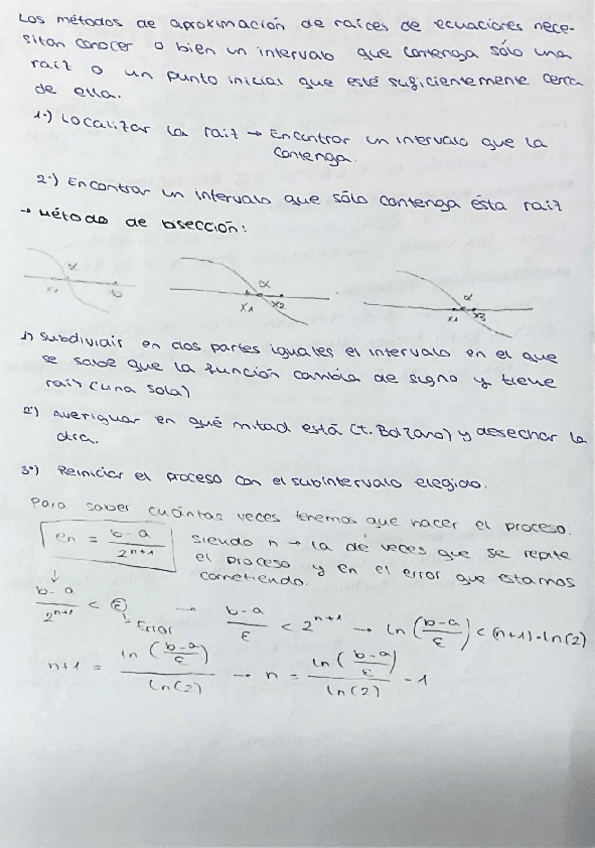 Los métodos de aproximación de raíces de ecuaciones nece-
sitan conocer o bien un intervalo que contenga sólo una
raíz o un punto inicial que esté suficientemente cerca
de ella.
1º) Localizar la raíz → Encontrar un intervalo que la
contenga.
2º) Encontrar un intervalo que sólo contenga ésta raíz
→ Método de bisección:
α α α
x1 b x1 x2 x1 x3
1) Subdividir en dos partes iguales el intervalo en el que
se sabe que la función cambia de signo y tiene
raíz (una sola)
2º) Averiguar en qué mitad está (t. Bolzano) y desechar la
otra.
3º) Reiniciar el proceso con el subintervalo elegido.
Para saber cuántas veces tenemos que hacer el proceso.
en = b-a / 2^(n+1) siendo n → la de veces que se repite
el proceso y en el error que estamos
cometiendo.
↓
b-a / 2^(n+1) < ε → Error → b-a / ε < 2^(n+1) → ln(b-a / ε) < (n+1)·ln(2)
n+1 = ln(b-a / ε) / ln(2) → n = ln(b-a / ε) / ln(2) - 1